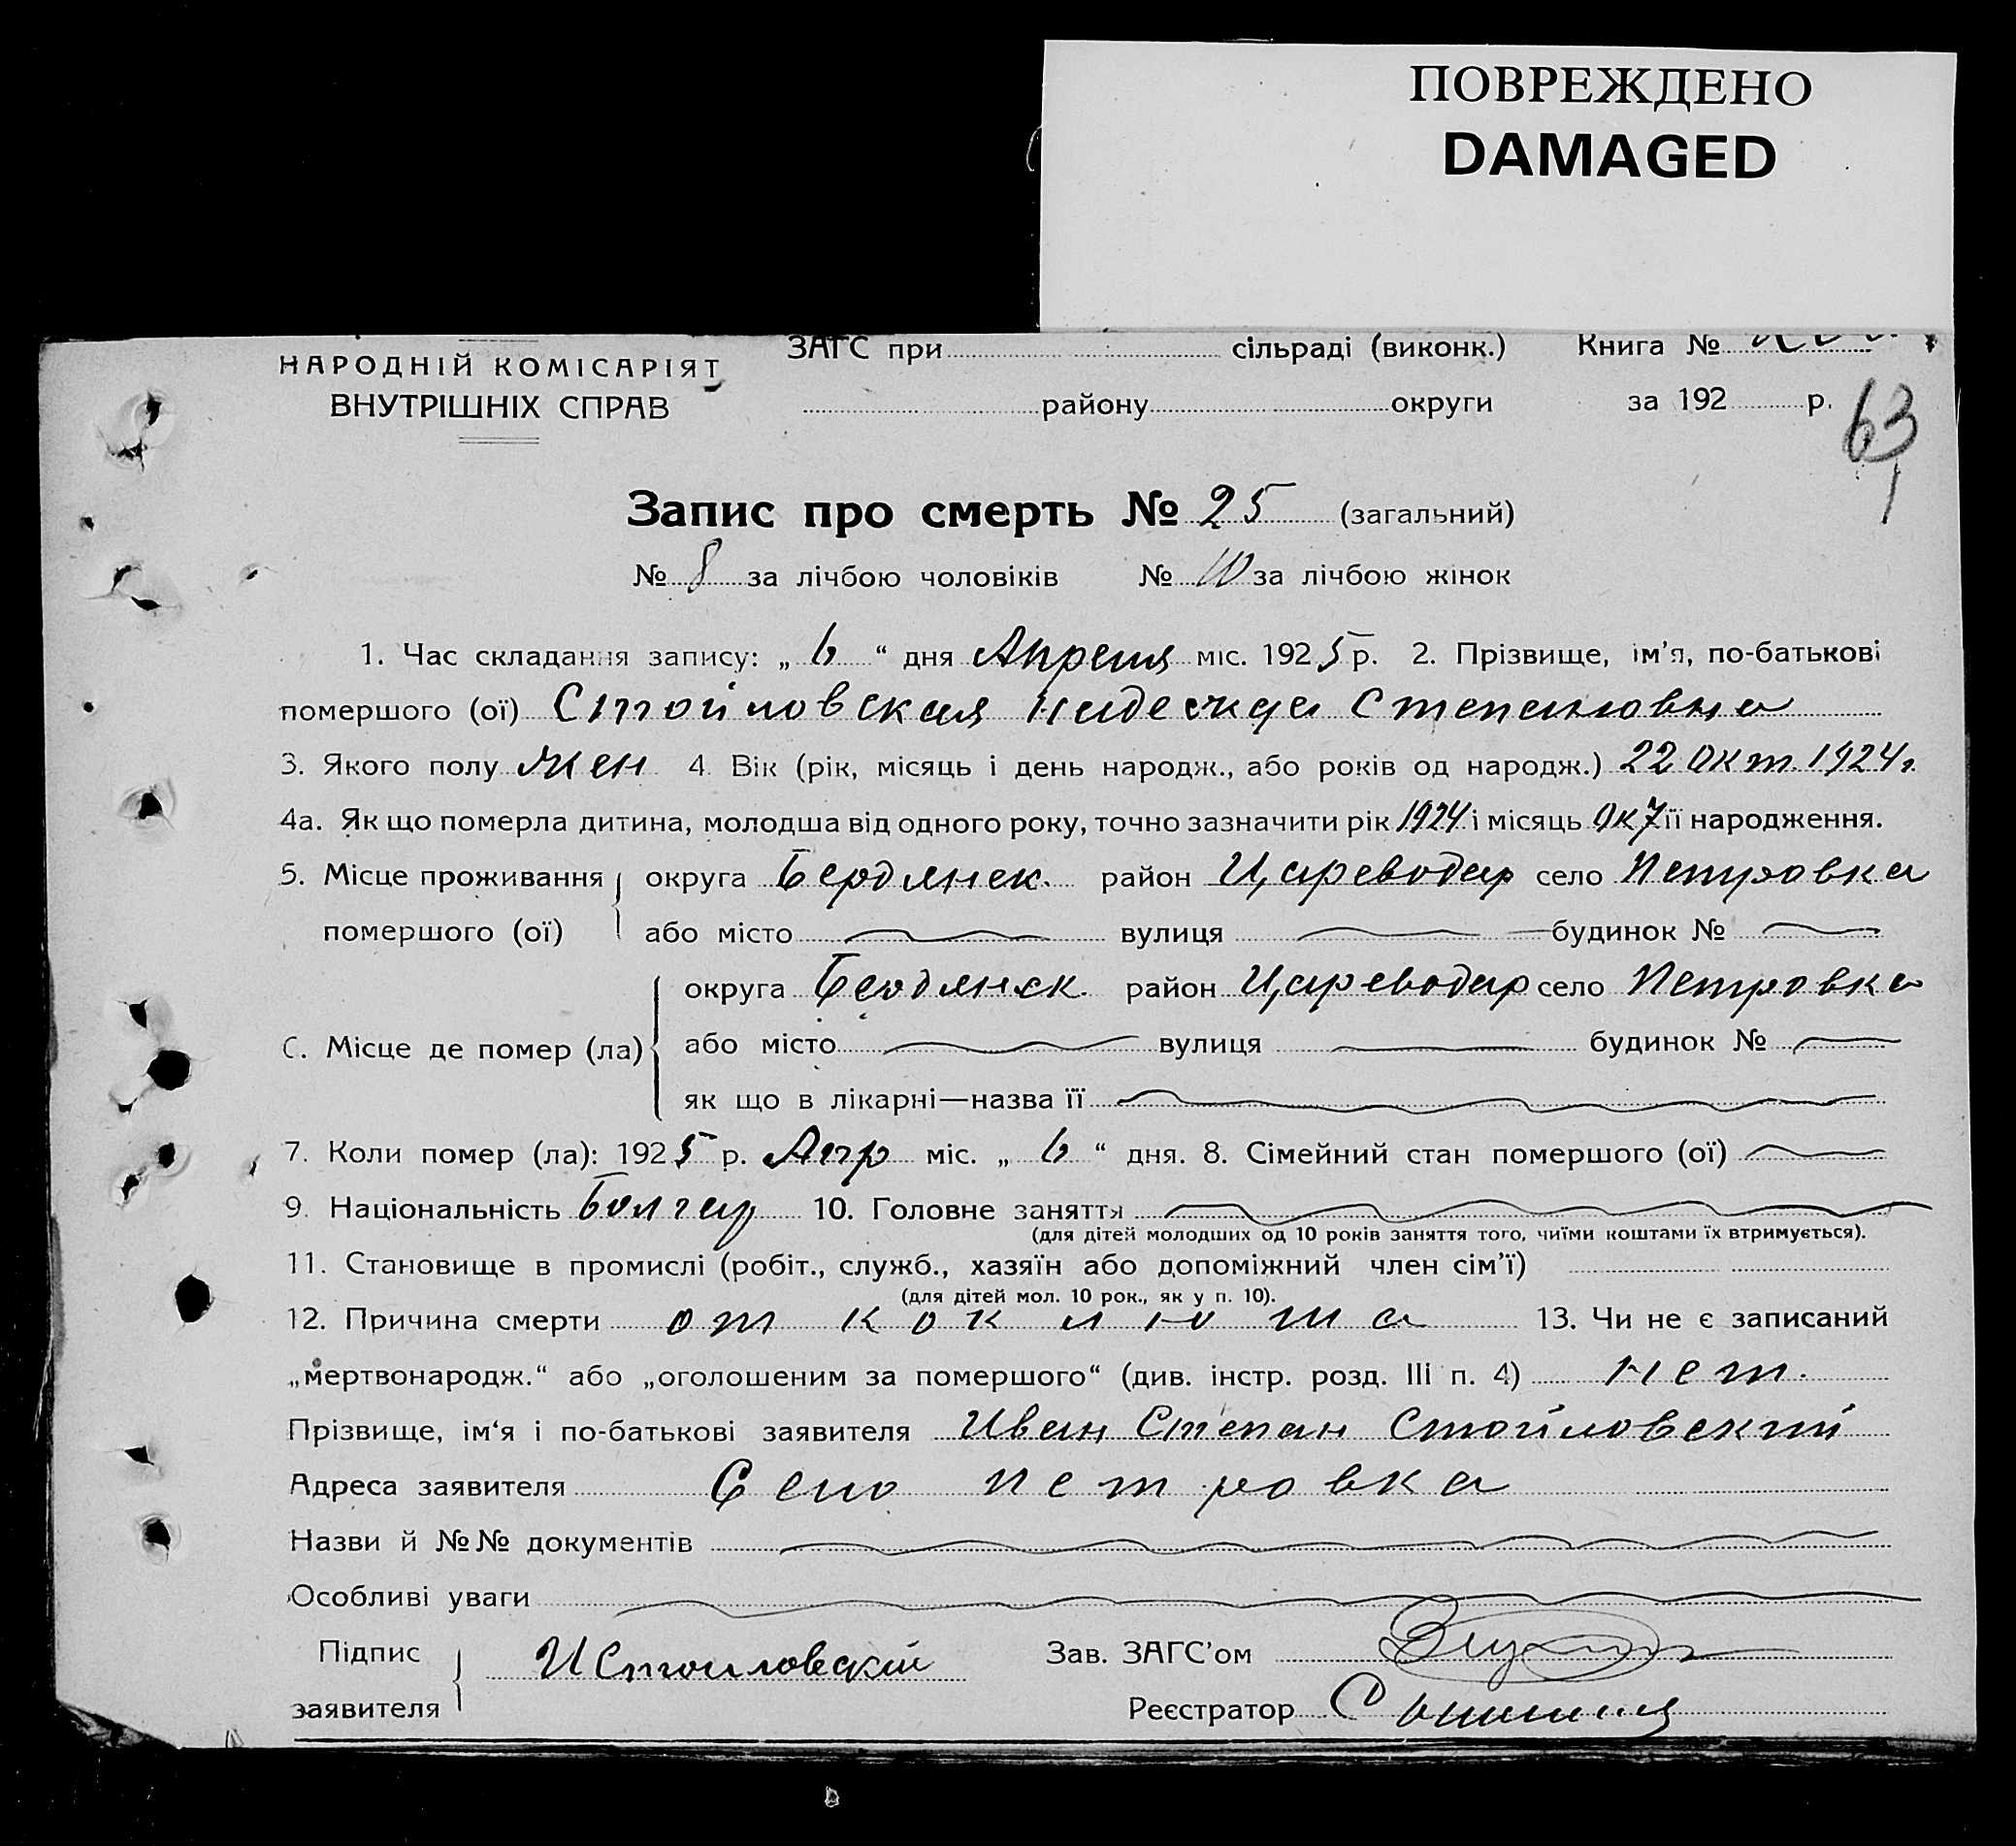 ПОВРЕЖДЕНО
DAMAGED
ЗАГС при сільраді (виконк.) Книга №
НАРОДНІЙ КОМІСАРІЯТ
ВНУТРІШНІХ СПРАВ
району округи за 192 р.
63
Запис про смерть № 25 (загальний)
№ 8 за лічбою чоловіків № за лічбою жінок
1. Час складання запису: „ 6 “ дня Апреля міс. 1925 р. 2. Прізвище, ім'я, по-батькові
помершого (ої) Стойловская Надежда Степановна
3. Якого полу жен 4. Вік (рік, місяць і день народж., або років од народж.) 22 Окт. 1924 г.
4а. Як що померла дитина, молодша від одного року, точно зазначити рік 1924 і місяць Окт її народження.
5. Місце проживання округа Бердянск. район Цареводар село Петровка
помершого (ої) або місто вулиця будинок №
округа Бердянск. район Цареводар село Петровка
6. Місце де помер (ла) або місто вулиця будинок №
як що в лікарні—назва її
7. Коли помер (ла): 1925 р. Апр міс. „ 6 “ дня. 8. Сімейний стан помершого (ої)
9. Національність Болгар 10. Головне заняття
(для дітей молодших од 10 років заняття того, чиїми коштами їх втримується).
11. Становище в промислі (робіт., служб., хазяїн або допоміжний член сім'ї)
(для дітей мол. 10 рок., як у п. 10).
12. Причина смерти от коклюша 13. Чи не є записаний
„мертвонародж.“ або „оголошеним за помершого“ (див. інстр. розд. III п. 4) нет.
Прізвище, ім'я і по-батькові заявителя Иван Степан Стойловский
Адреса заявителя Село Петровка
Назви й №№ документів
Особливі уваги
Підпис И Стоиловскіи Зав. ЗАГС'ом
заявителя Реєстратор